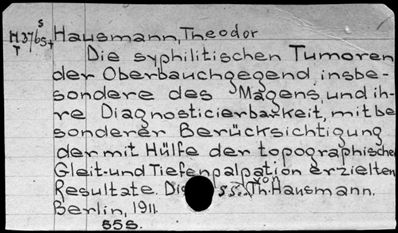 Hausmann, Theodor
Die syphilitischen Tumoren
der Oberbauchgegend, insbe-
sondere des Magens, und ih-
re Diagnosticierbarkeit, mit be
sonderer Berücksichtigung
der mit Hülfe der topographische
Gleit- und Tiefenpalpation erzielten
Resultate. Von Th. Hausmann.
Berlin, 1911.
55S.